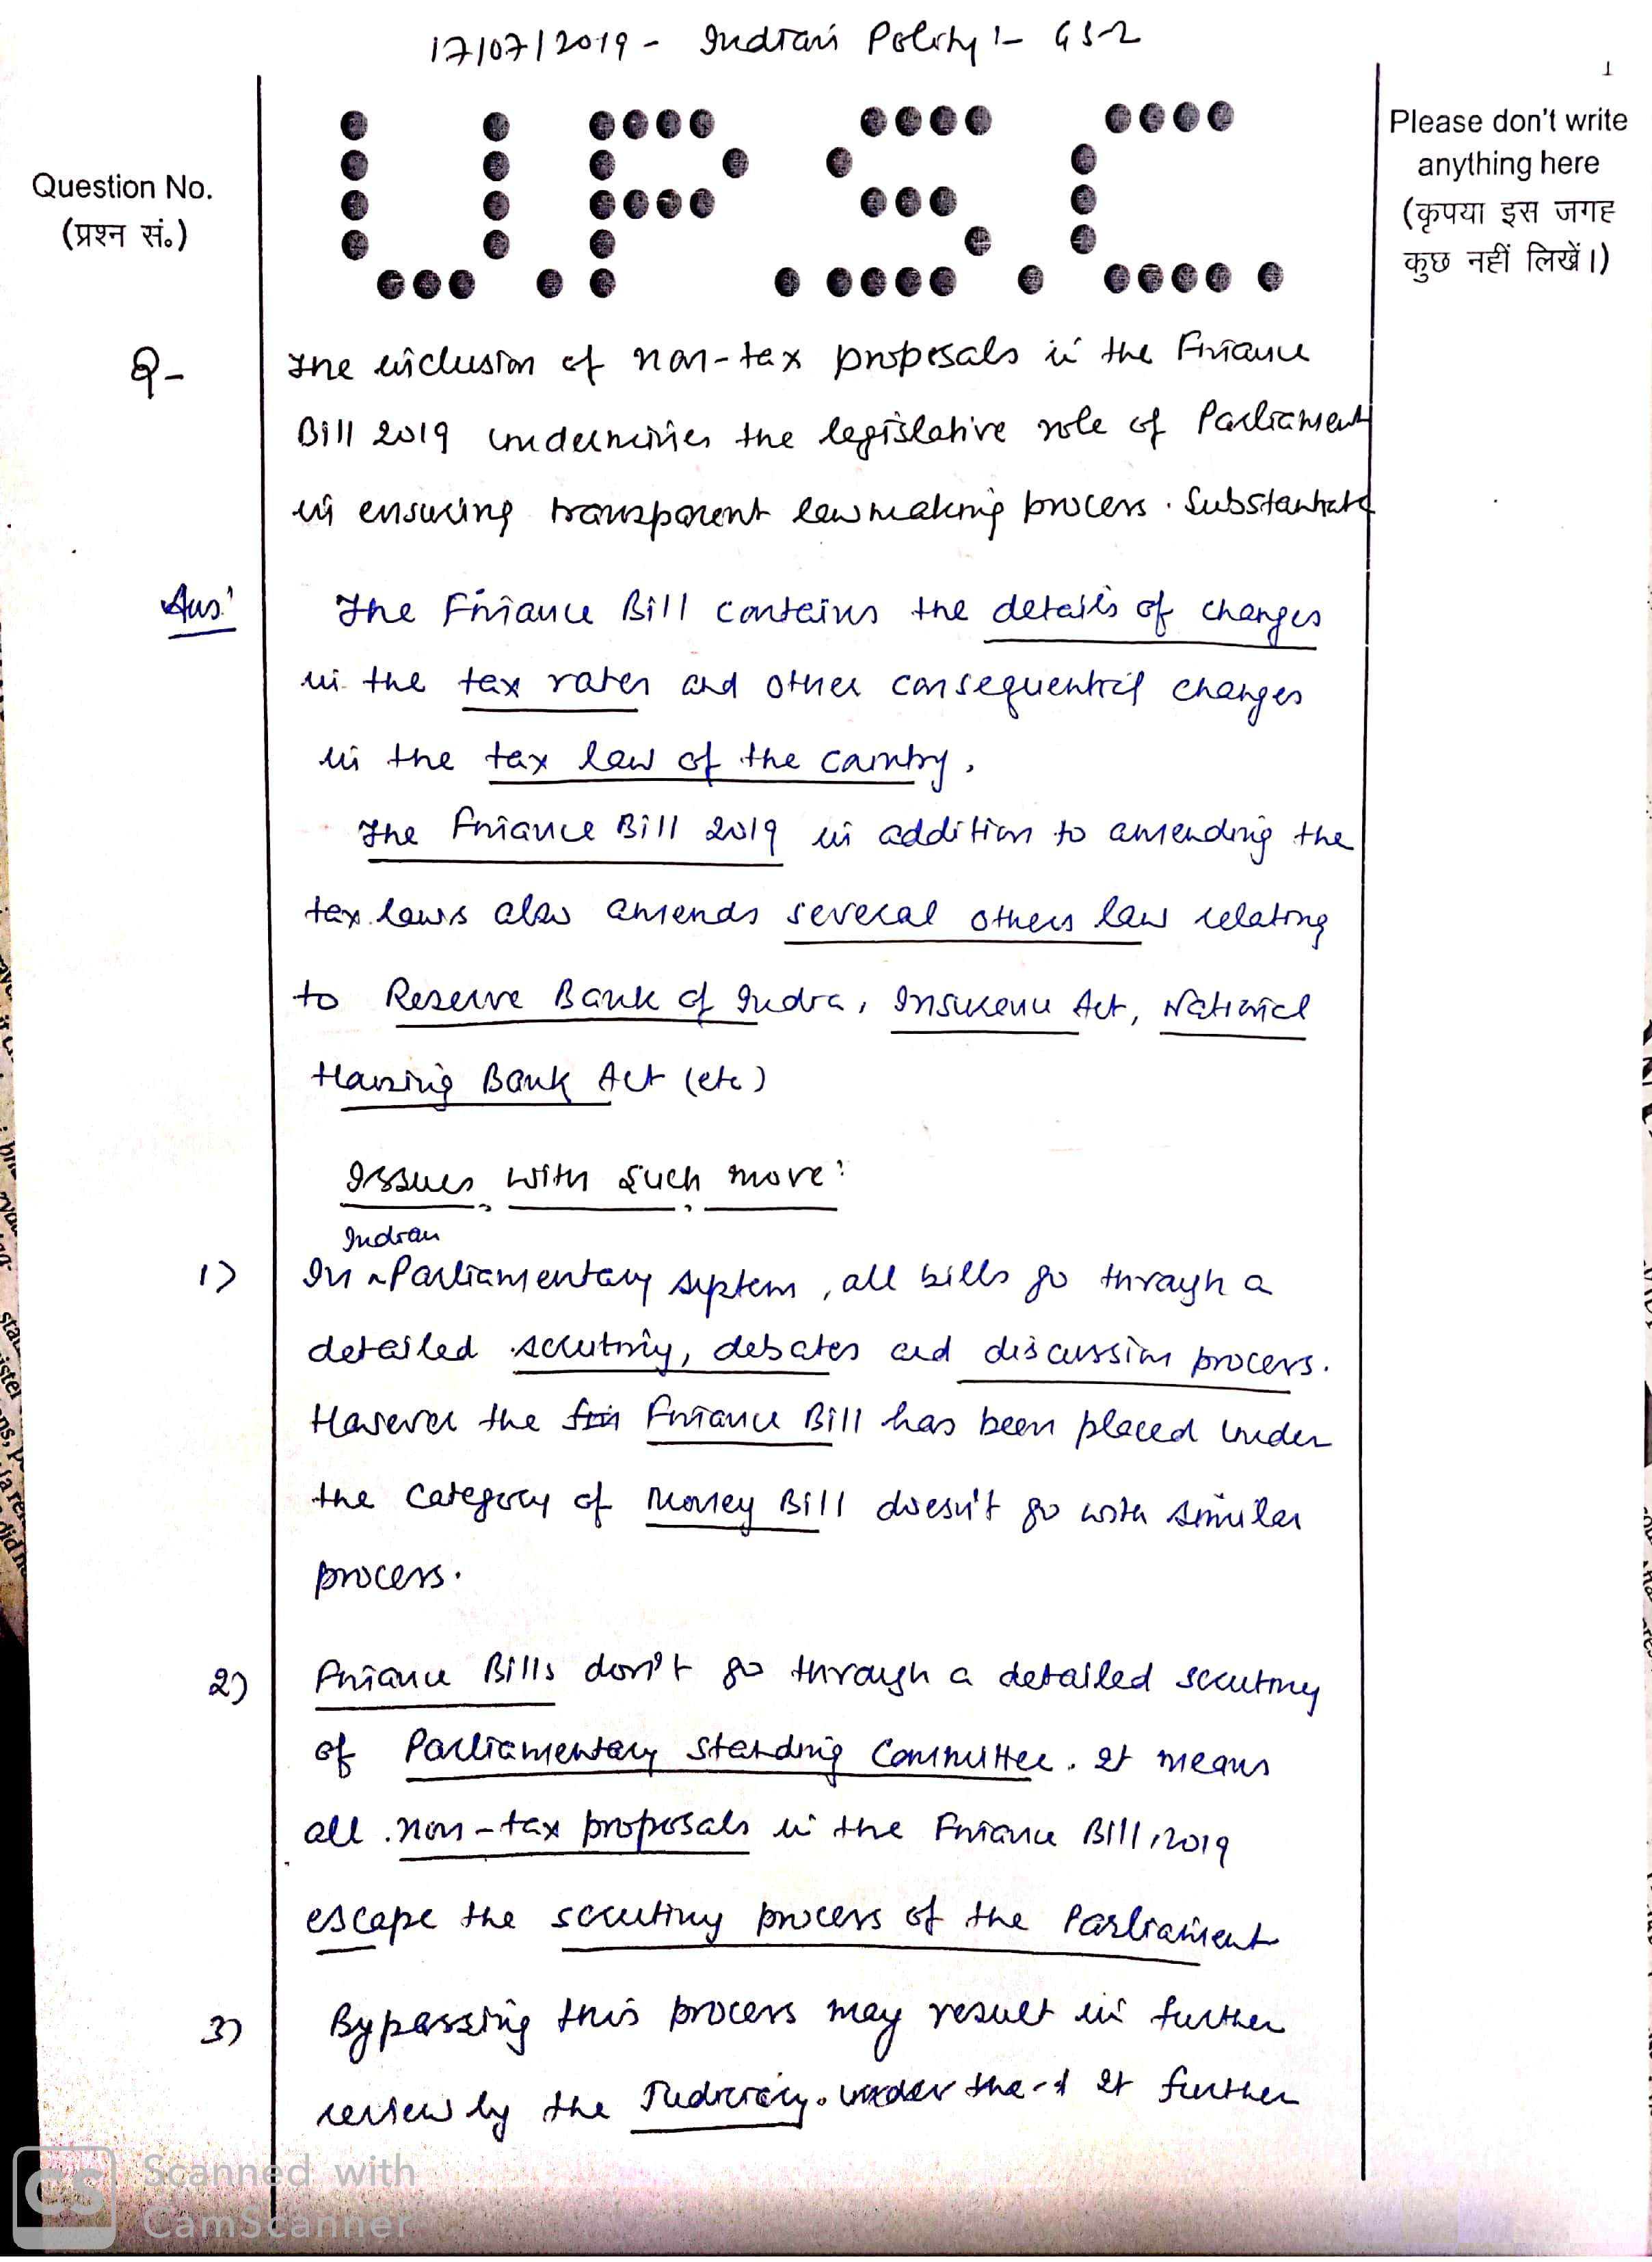 17/07/2019 - Indian Polity :- GS-2
1
UPSC
Question No.
(प्रश्न सं.)
Please don't write
anything here
(कृपया इस जगह
कुछ नहीं लिखें।)
Q- The inclusion of non-tax proposals in the Finance
Bill 2019 undermines the legislative role of Parliament
in ensuring transparent lawmaking process. Substantiate
Ans: The Finance Bill contains the details of changes
in the tax rates and other consequential changes
in the tax law of the country.
The Finance Bill 2019 in addition to amending the
tax laws also amends several others law relating
to Reserve Bank of India, Insurance Act, National
Housing Bank Act (etc)
Issues with such move:
Indian
1) In Parliamentary system, all bills go through a
detailed scrutiny, debates and discussion process.
However the Finance Bill has been placed under
the category of Money Bill doesn't go with similar
process.
2) Finance Bills don't go through a detailed scrutiny
of Parliamentary Standing Committee. It means
all non-tax proposals in the Finance Bill, 2019
escape the scrutiny process of the Parliament
3) Bypassing this process may result in further
review by the Judiciary. under the It further
CS Scanned with
CamScanner